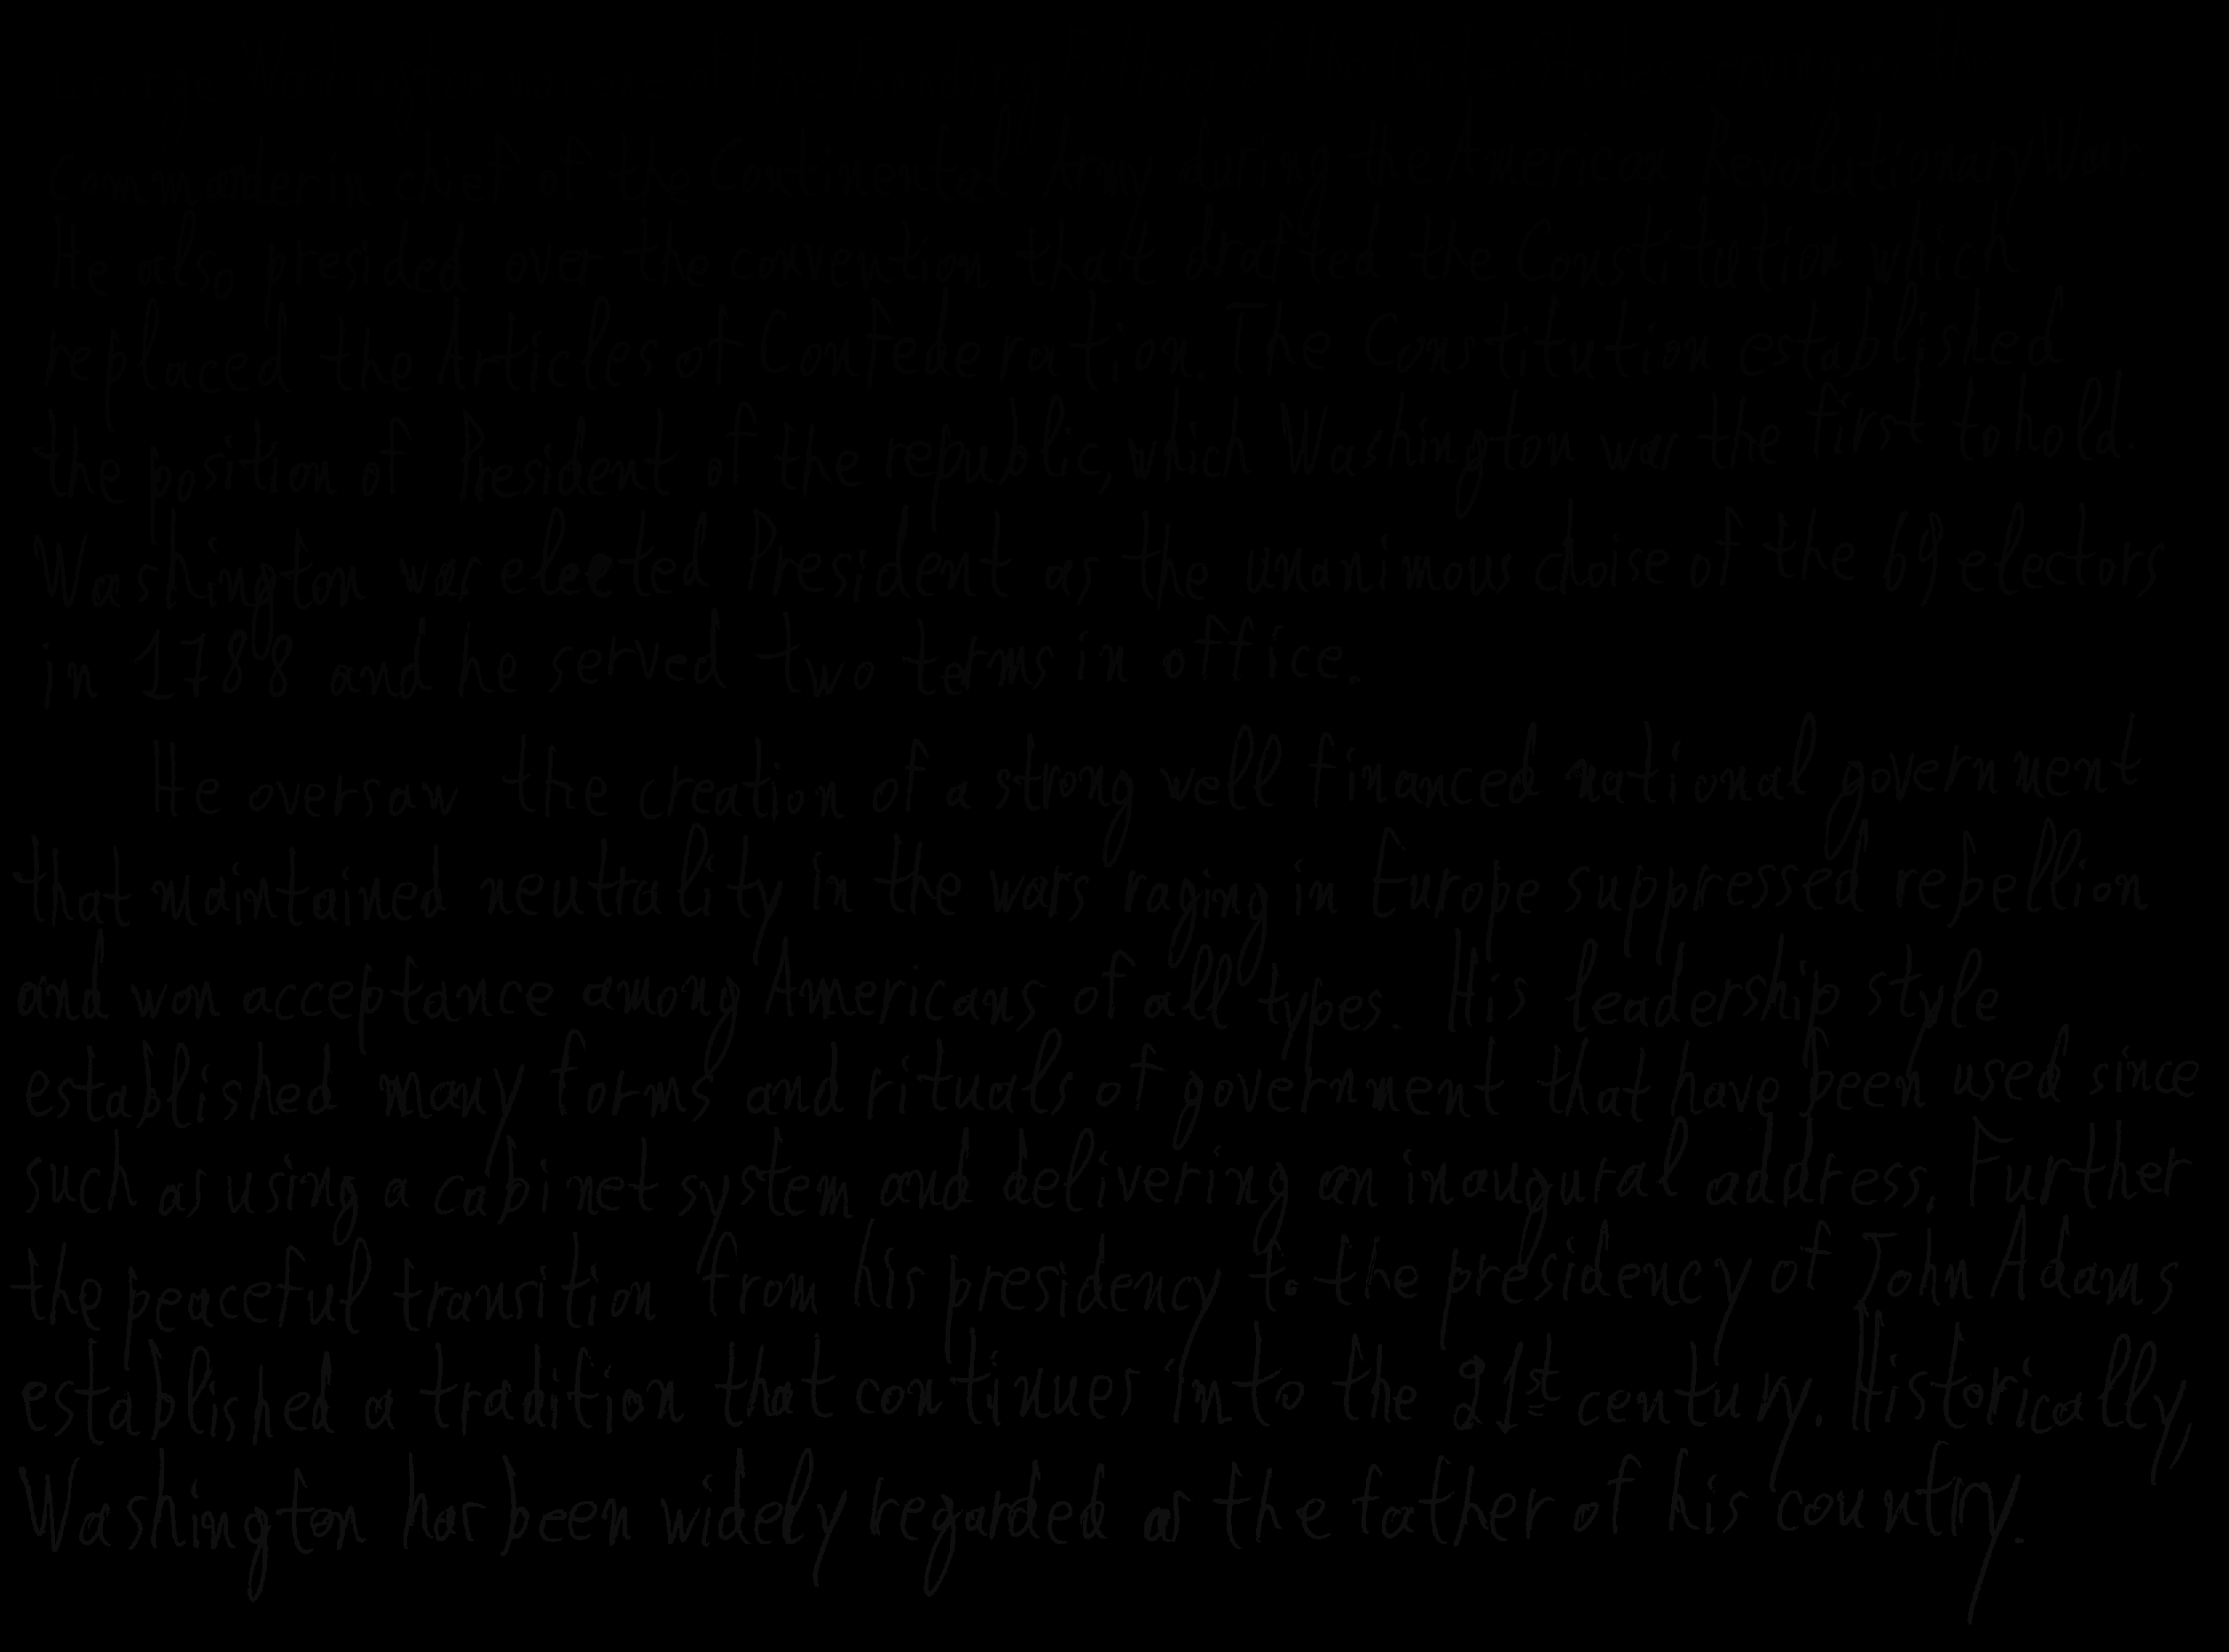 Commander in chief of the Continental Army during the American Revolutionary War.
He also presided over the convention that drafted the Constitution which
replaced the Articles of Confederation. The Constitution established
the position of President of the republic, which Washington was the first to hold.
Washington was elected President as the unanimous choise of the 69 electors
in 1788 and he served two terms in office.
He oversaw the creation of a strong well financed national government
that maintained neutrality in the wars raging in Europe suppressed rebellion
and won acceptance among Americans of all types. His leadership style
established many forms and rituals of government that have been used since
such as using a cabinet system and delivering an inaugural address. Further
the peaceful transition from his presidency to the presidency of John Adams
established a tradition that continues into the 21st century. Historically,
Washington has been widely regarded as the father of his country.